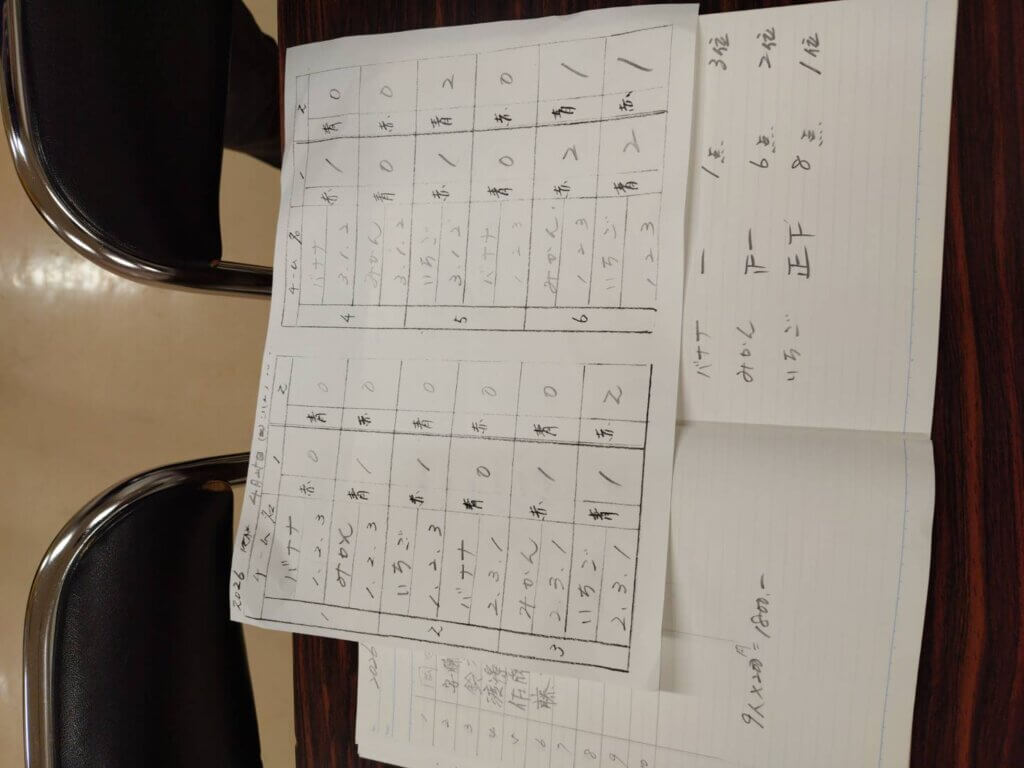 2026
チーム名 1 2
1 バナナ 赤 0 青 0
1.2.3
みかん 青 1 赤 0
1.2.3
2 いちご 赤 1 青 0
1.2.3
バナナ 青 0 赤 0
2.3.1
3 みかん 赤 1 青 0
2.3.1
いちご 青 1 赤 2
2.3.1
チーム名 1 2
4 バナナ 赤 1 青 0
3.1.2
みかん 青 0 赤 0
3.1.2
5 いちご 赤 1 青 2
3.1.2
バナナ 青 0 赤 0
1 2 3
6 みかん 赤 2 青 1
1 2 3
いちご 青 2 赤 1
1 2 3
バナナ 一 1点 3位
みかん 正一 6点 2位
いちご 正下 8点 1位
9人×200円=1800.-
2026
1 岡
2
3
4
5 佐藤
6 藤
7
8
9
10